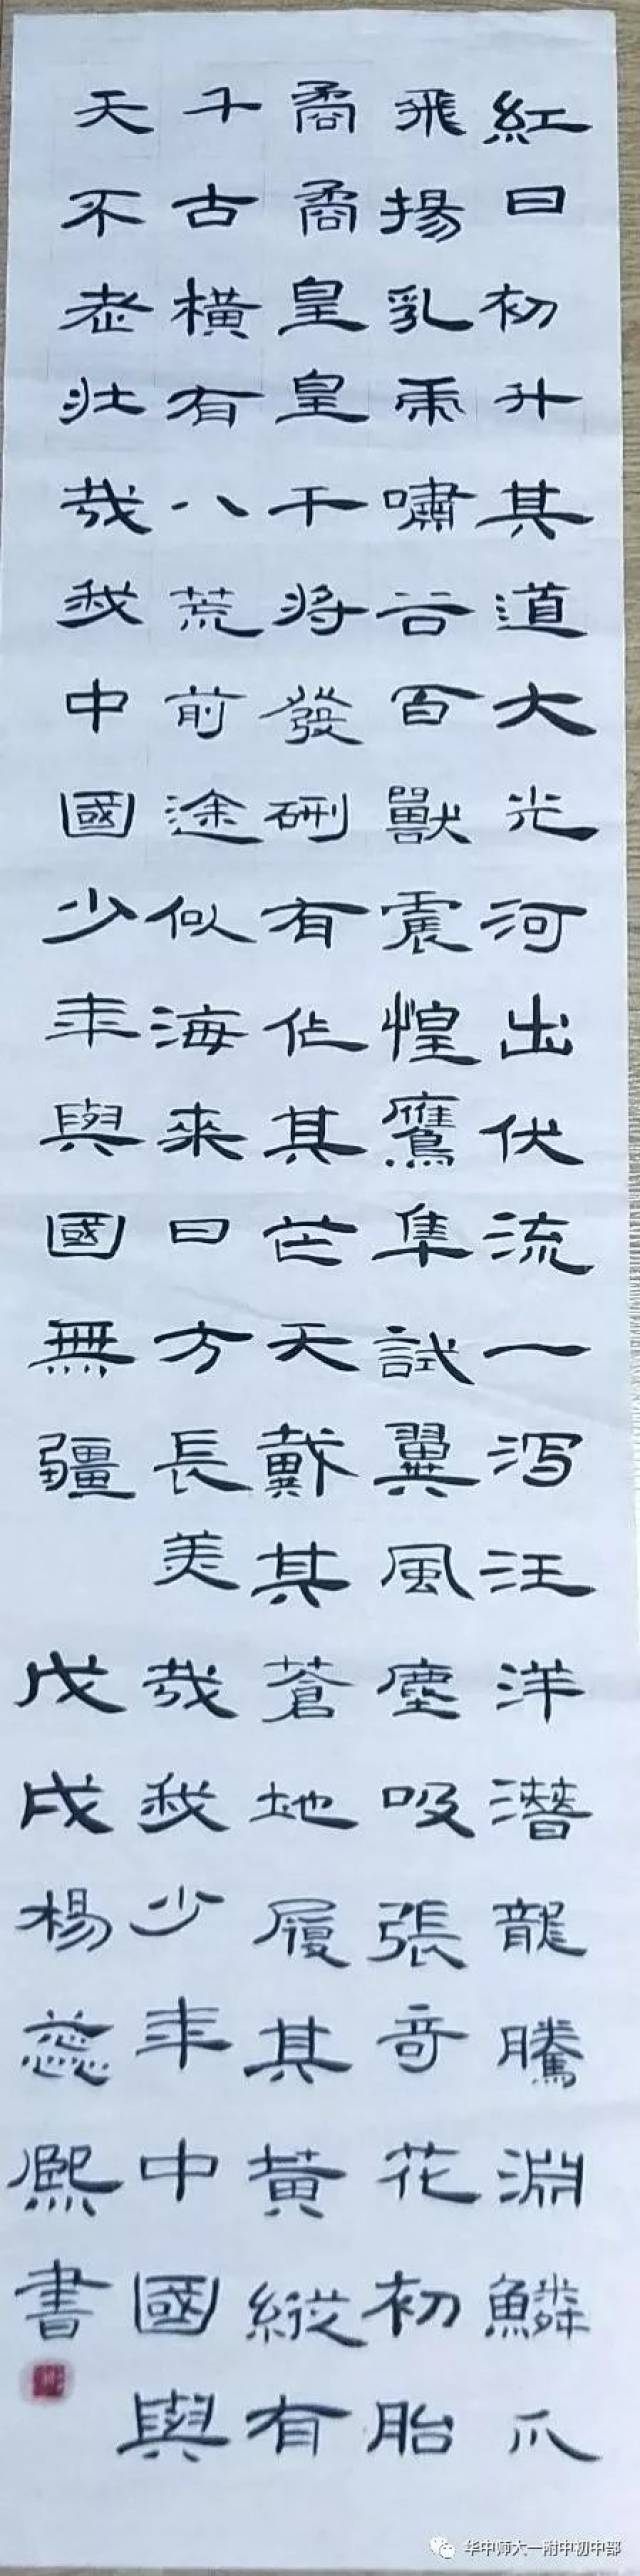 紅日初升其道大光河出伏流一泻汪洋潛龍騰淵鱗爪
飛揚乳乕嘯谷百獸震惶鷹隼試翼風塵吸張奇花初胎
矞矞皇皇干将發硎有作其芒天戴其蒼地履其黃縱有
千古橫有八荒前途似海來日方長美哉我少年中國與
天不老壯哉我中國少年與國無疆
戊戌楊蕊熙書
华中师大一附中初中部